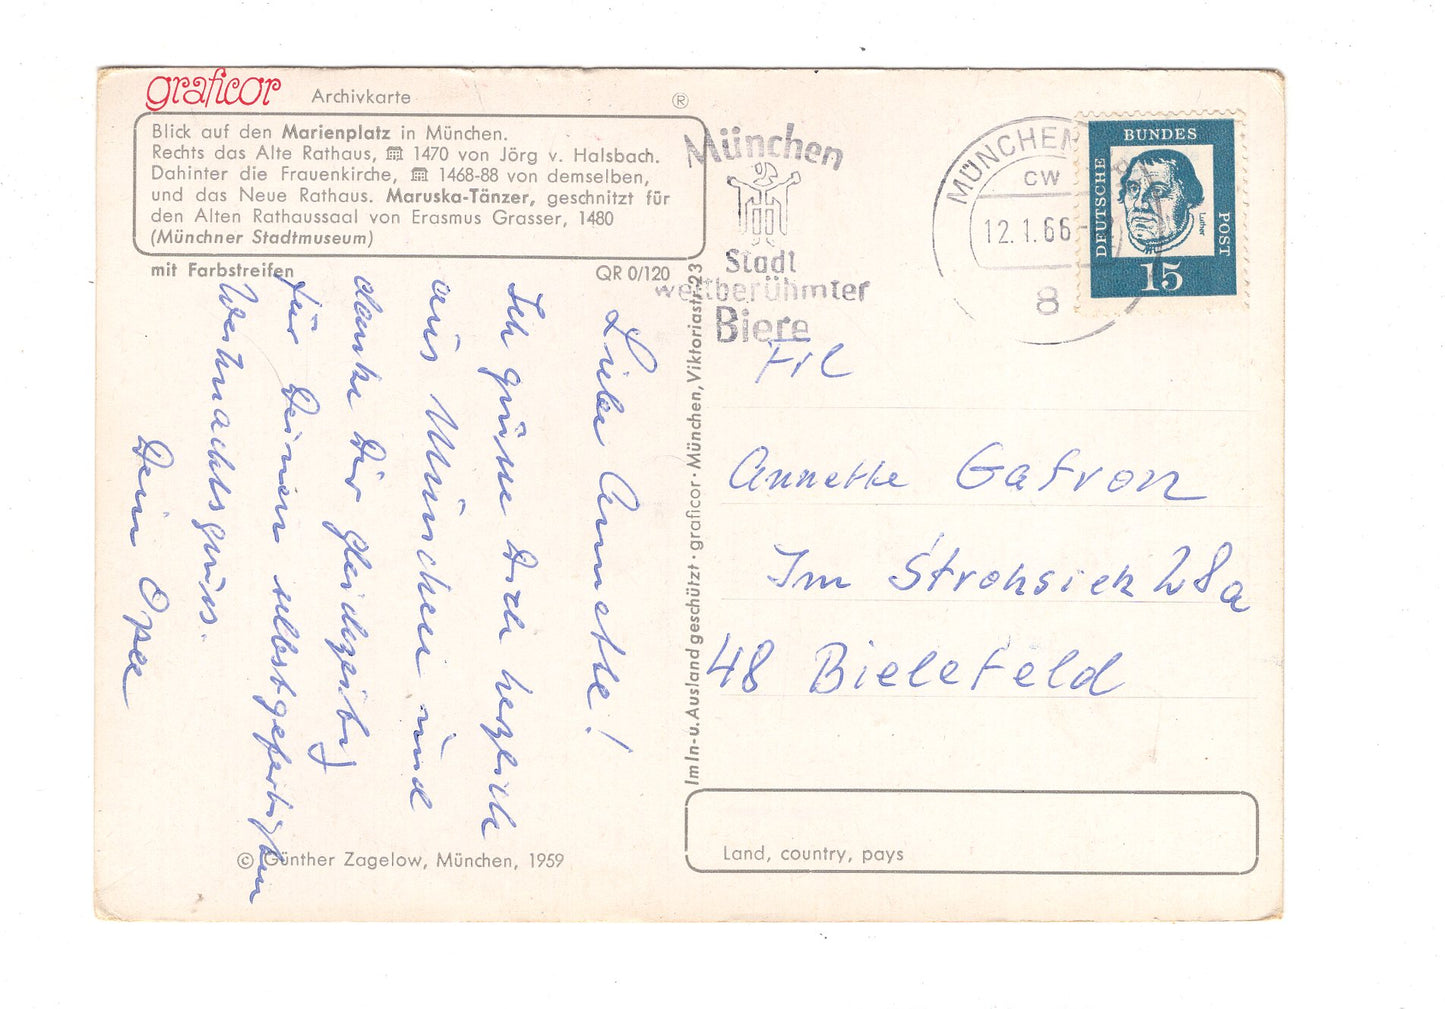 graficor Archivkarte
®
Blick auf den Marienplatz in München.
Rechts das Alte Rathaus, 1470 von Jörg v. Halsbach.
Dahinter die Frauenkirche, 1468-88 von demselben,
und das Neue Rathaus. Maruska-Tänzer, geschnitzt für
den Alten Rathaussaal von Erasmus Grasser, 1480
(Münchner Stadtmuseum)
mit Farbstreifen QR 0/120
Liebe Annette!
Ich grüsse Dich herzlich
aus München und
danke Dir gleichzeitig
für Deinen selbstgefertigten
Weihnachtsgruss.
Dein Opa
© Günther Zagelow, München, 1959
Im In- u. Ausland geschützt · graficor · München, Viktoriastr. 23
München
Stadt
weltberühmter
Biere
MÜNCHEN
CW
12.1.66
8
DEUTSCHE
BUNDES
POST
Luther
15
Frl
Annette Gafron
Im Strohsiek 28a
48 Bielefeld
Land, country, pays